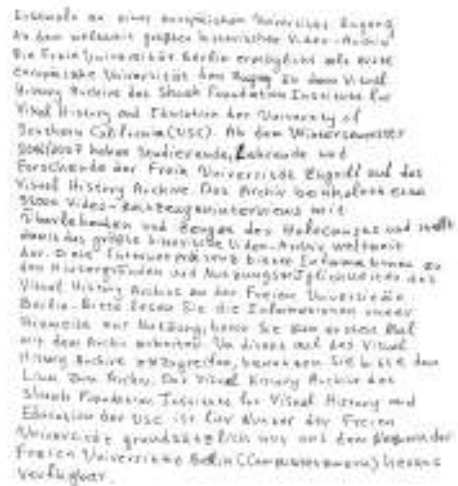 Erstmals an einer europäischen Universität Zugang
zu dem weltweit größten historischen Video-Archiv
Die Freie Universität Berlin ermöglicht als erste
europäische Universität den Zugang zu dem Visual
History Archive des Shoah Foundation Institute for
Visual History and Education der University of
Southern California (USC). Ab dem Wintersemester
2006/2007 haben Studierende, Lehrende und
Forschende der Freien Universität Zugriff auf das
Visual History Archive. Das Archiv beinhaltet etwa
Video-Zeitzeugeninterviews mit
Überlebenden und Zeugen des Holocaust und stellt
damit das größte historische Video-Archiv weltweit
dar. Diese Internetpräsenz bietet Informationen zu
den Hintergründen und Nutzungsmöglichkeiten des
Visual History Archive an der Freien Universität
Berlin. Bitte lesen Sie die Informationen unter
Hinweise zur Nutzung, bevor Sie zum ersten Mal
mit dem Archiv arbeiten. Um direkt auf das Visual
History Archive zuzugreifen, benutzen Sie bitte den
Link zum Archiv. Das Visual History Archive des
Shoah Foundation Institute for Visual History and
Education der USC ist für Nutzer der Freien
Universität grundsätzlich nur auf dem der
Freien Universität Berlin (Campusnetzwerk) heraus
verfügbar.